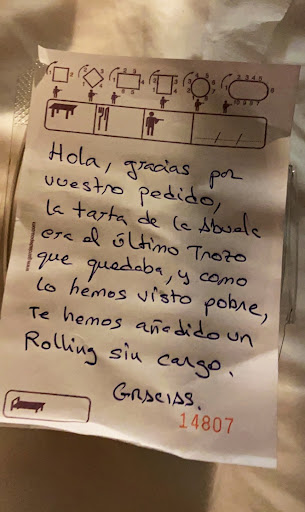 Hola, gracias por
vuestro pedido,
la tarta de la Abuela
era el último Trozo
que quedaba, y como
lo hemos visto pobre,
Te hemos añadido un
Rolling sin cargo.
GRACIAS.
14807